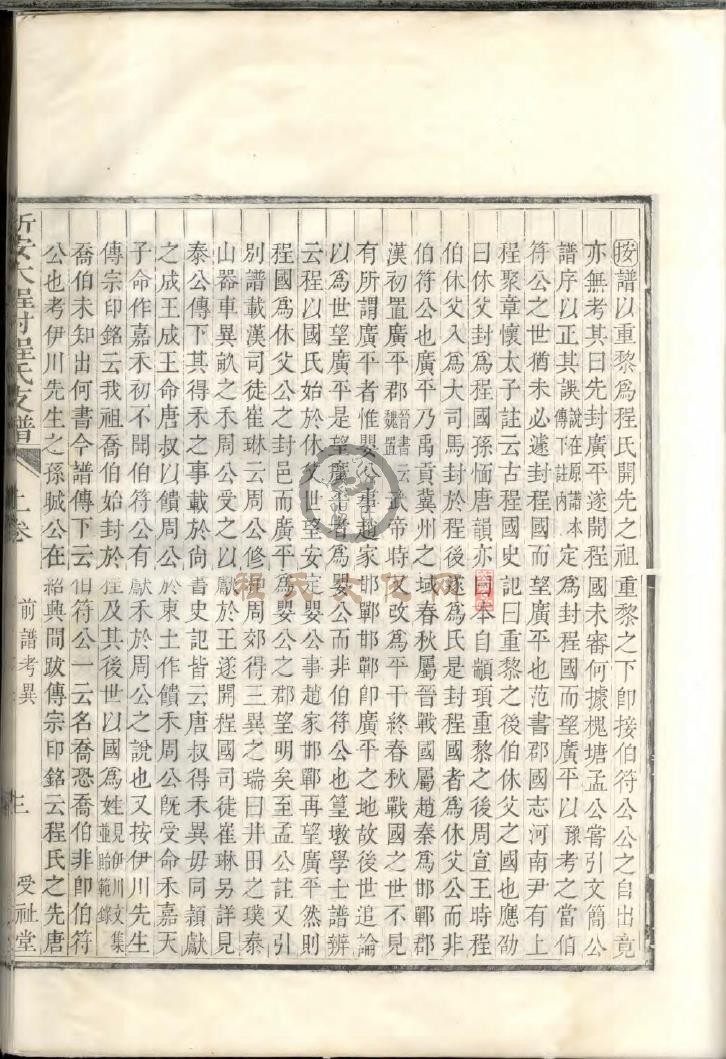 按譜以重黎爲程氏開先之祖重黎之下即接伯符公公之自出竟
亦無考其曰先封廣平遂開程國未審何據槐塘孟公嘗引文簡公
譜序以正其誤說在原譜本傳下註內定爲封程國而望廣平以豫考之當伯
符公之世猶未必遽封程國而望廣平也范書郡國志河南尹有上
程聚章懷太子註云古程國史記曰重黎之後伯休父之國也應劭
曰休父封爲程國孫愐唐韻亦曰本自顓頊重黎之後周宣王時程
伯休父入爲大司馬封於程後爲氏是封程國者爲休父公而非
伯符公也廣平乃禹貢冀州之域春秋屬晉戰國屬趙秦爲邯鄲郡
漢初置廣平郡晉書云魏置武帝時又改爲平干終春秋戰國之世不見
有所謂廣平者惟嬰公事趙家邯鄲邯鄲卽廣平之地故後世追論
以爲世望廣平是望廣平者爲嬰公而非伯符公也篁墩學士譜辨
云程以國氏始於休父世望安定嬰公事趙家邯鄲再望廣平然則
程國爲休父公之封邑而廣平爲嬰公之郡望明矣至孟公註又引
別譜載漢司徒崔琳云周公修理周郊得三異之瑞曰井田之璞泰
山器車異畝之禾周公受之以獻於王遂開程國司徒崔琳另詳見
泰公傳下其得禾之事載於尚書史記皆云唐叔得禾異毋同頴獻
之成王成王命唐叔以饋周公於東土作饋禾周公旣受命禾嘉天
子命作嘉禾初不聞伯符公有獻禾於周公之說也又按伊川先生
傳宗印銘云我祖喬伯始封於程及其後世以國爲姓見伊川文集並貽範錄
喬伯未知出何書今譜傳下云伯符公一云名喬恐喬伯非卽伯符
公也考伊川先生之孫晠公在紹興間跋傳宗印銘云程氏之先唐
新安大程村程氏支譜
上卷
前譜考異
三
受祉堂
程氏文化网